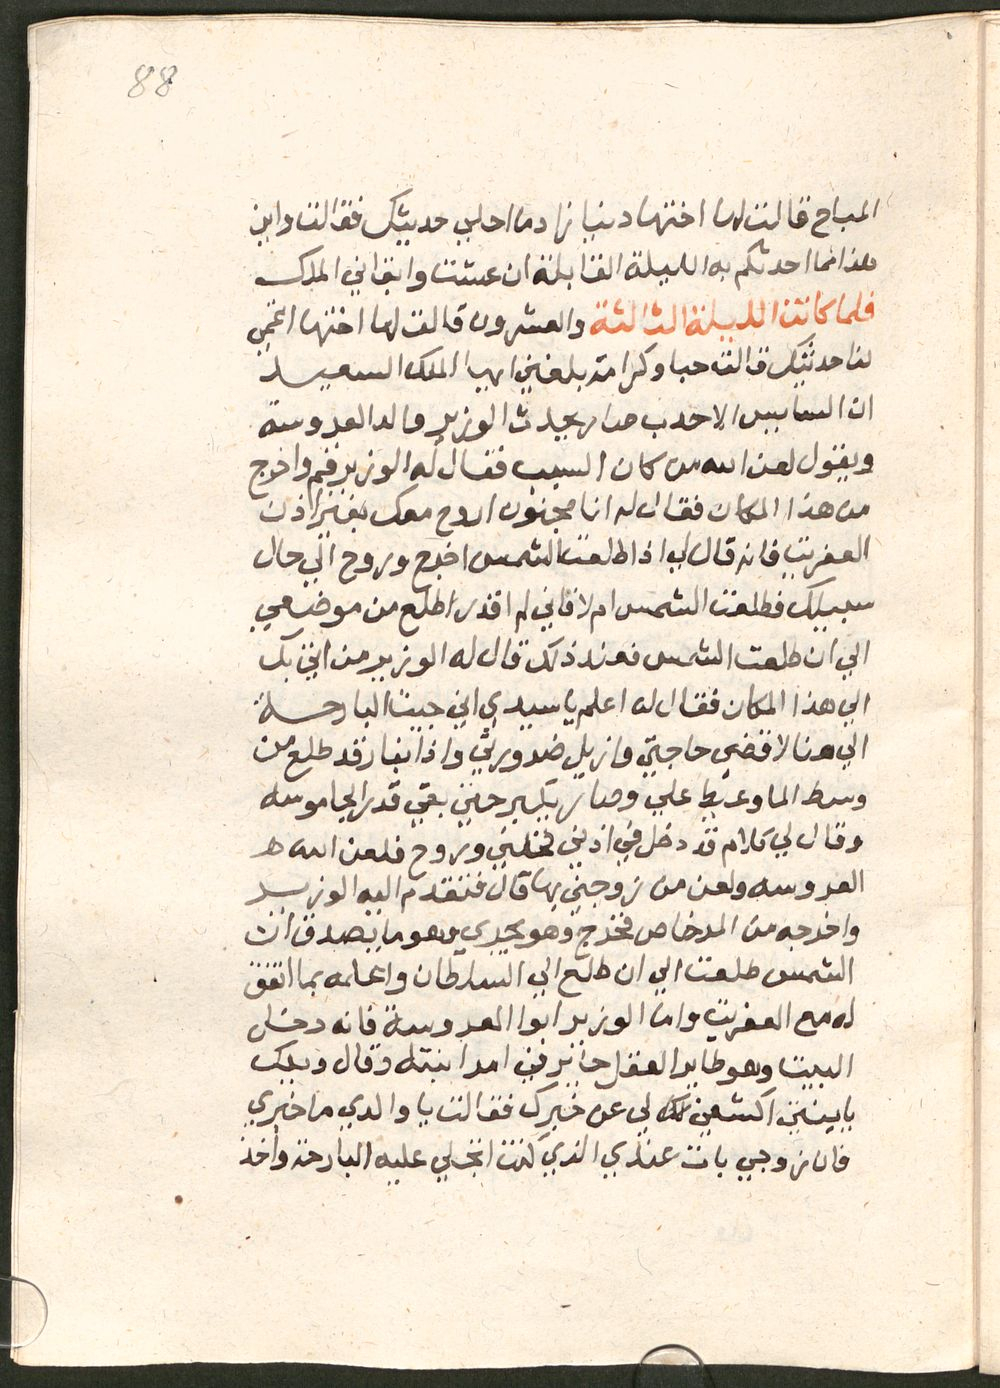 88
المباح قالت لها اختها دينا زاد ما احلي حديثك فقالت واين
هذا مما احدثكم به الليلة القابلة ان عشت وابقاني الملك
فلما كانت الليلة الثالثة والعشرون قالت لها اختها اتمي
لنا حديثك قالت حبا وكرامة بلغني ايها الملك السعيد
ان السايس الاحدب صار يحدث الوزير والد العروسة
ويقول لعن الله من كان السبب فقال له الوزير قم واخرج
من هذا المكان فقال له انا مجنون اروح معك بغير اذن
العفريت فانه قال لي اذا طلعت الشمس اخرج وروح الي حال
سبيلك فطلعت الشمس ام لا فاني لم اقدر اطلع من موضعي
الي ان طلعت الشمس فعند ذلك قال له الوزير من اتي بك
الي هذا المكان فقال له اعلم يا سيدي اني جيت البارحة
الي هنا لاقضي حاجتي وازيل ضرورتي واذا بفار قد طلع من
وسط الما وعيط علي وصار يكبر حتي بقي قدر الجاموسه
وقال لي كلام قد دخل في اذني فخلني وروح فلعن الله
العروسه ولعن من زوجني بها قال فتقدم اليه الوزير
واخرجه من المرخاض فخرج وهو يجري وهو ما يصدق ان
الشمس طلعت الي ان طلع الي السلطان واعلمه بما اتفق
له مع العفريت واما الوزير ابوا العروسة فانه دخل
البيت وهو طاير العقل حاير في امر ابنته وقال ويلك
يا بينتي اكشفي لي عن خبرك فقالت يا والدي ما خبري
فان زوجي بات عندي الذي كنت انجلي عليه البارحة واخذ